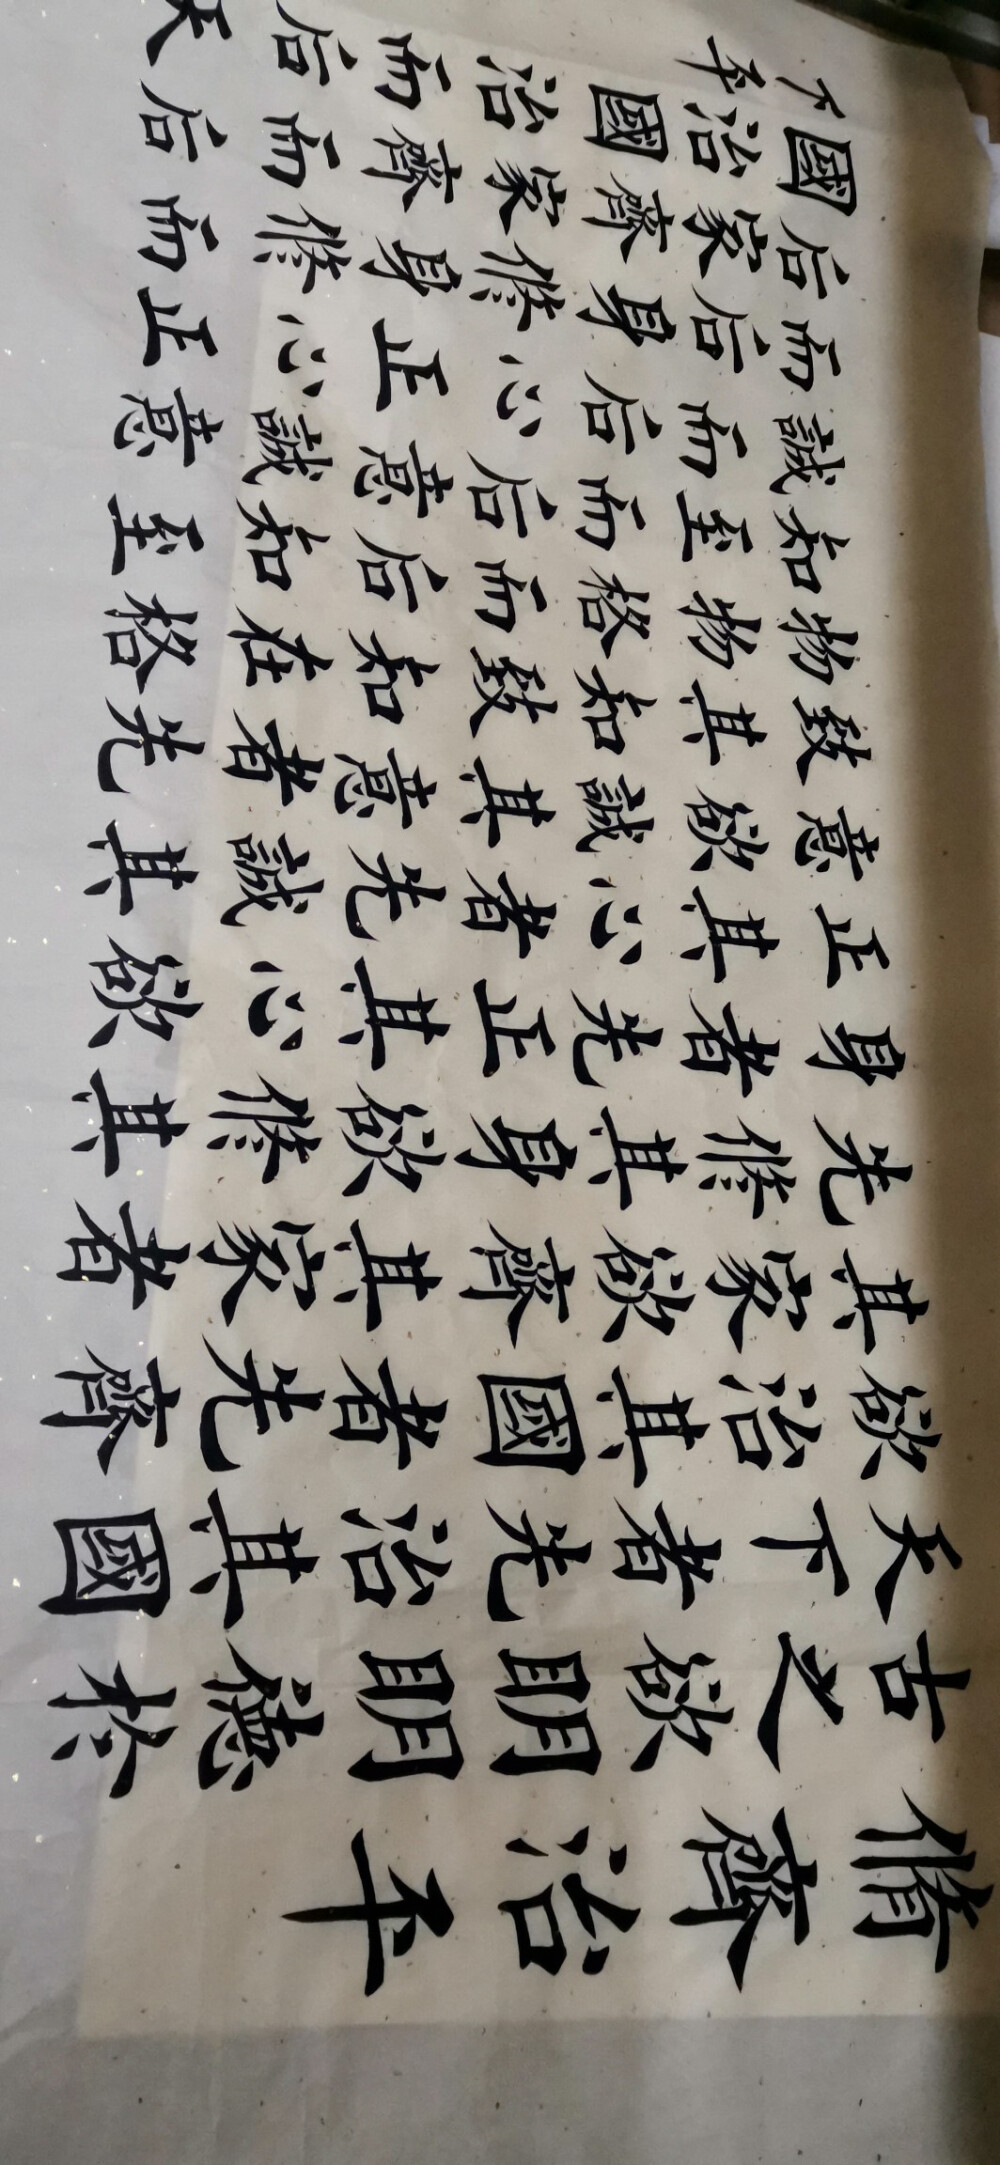 修齊治平
古之欲明明德於
天下者先治其國
欲治其國者先齊
其家欲齊其家者
先修其身欲修其
身者先正其心欲
正其心者先誠其
意欲誠其意者先
致其知致知在格
物物格而后知至
知至而后意誠意
誠而后心正心正
而后身修身修而
后家齊家齊而后
國治國治而后天
下平